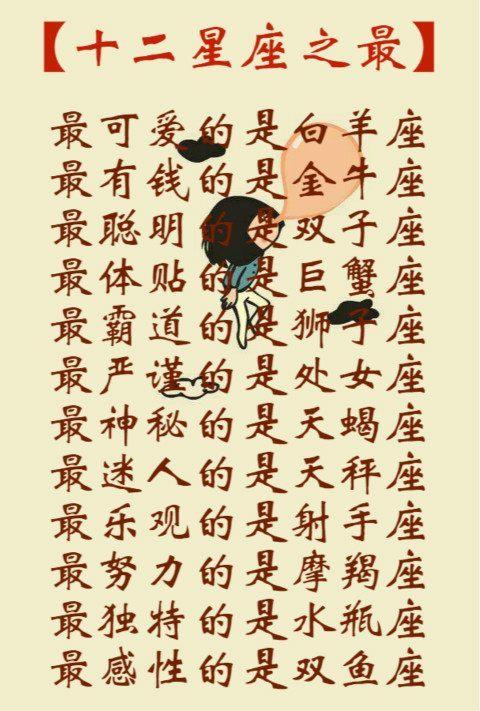 【十二星座之最】
最可爱的是白羊座
最有钱的是金牛座
最聪明的是双子座
最体贴的是巨蟹座
最霸道的是狮子座
最严谨的是处女座
最神秘的是天蝎座
最迷人的是天秤座
最乐观的是射手座
最努力的是摩羯座
最独特的是水瓶座
最感性的是双鱼座